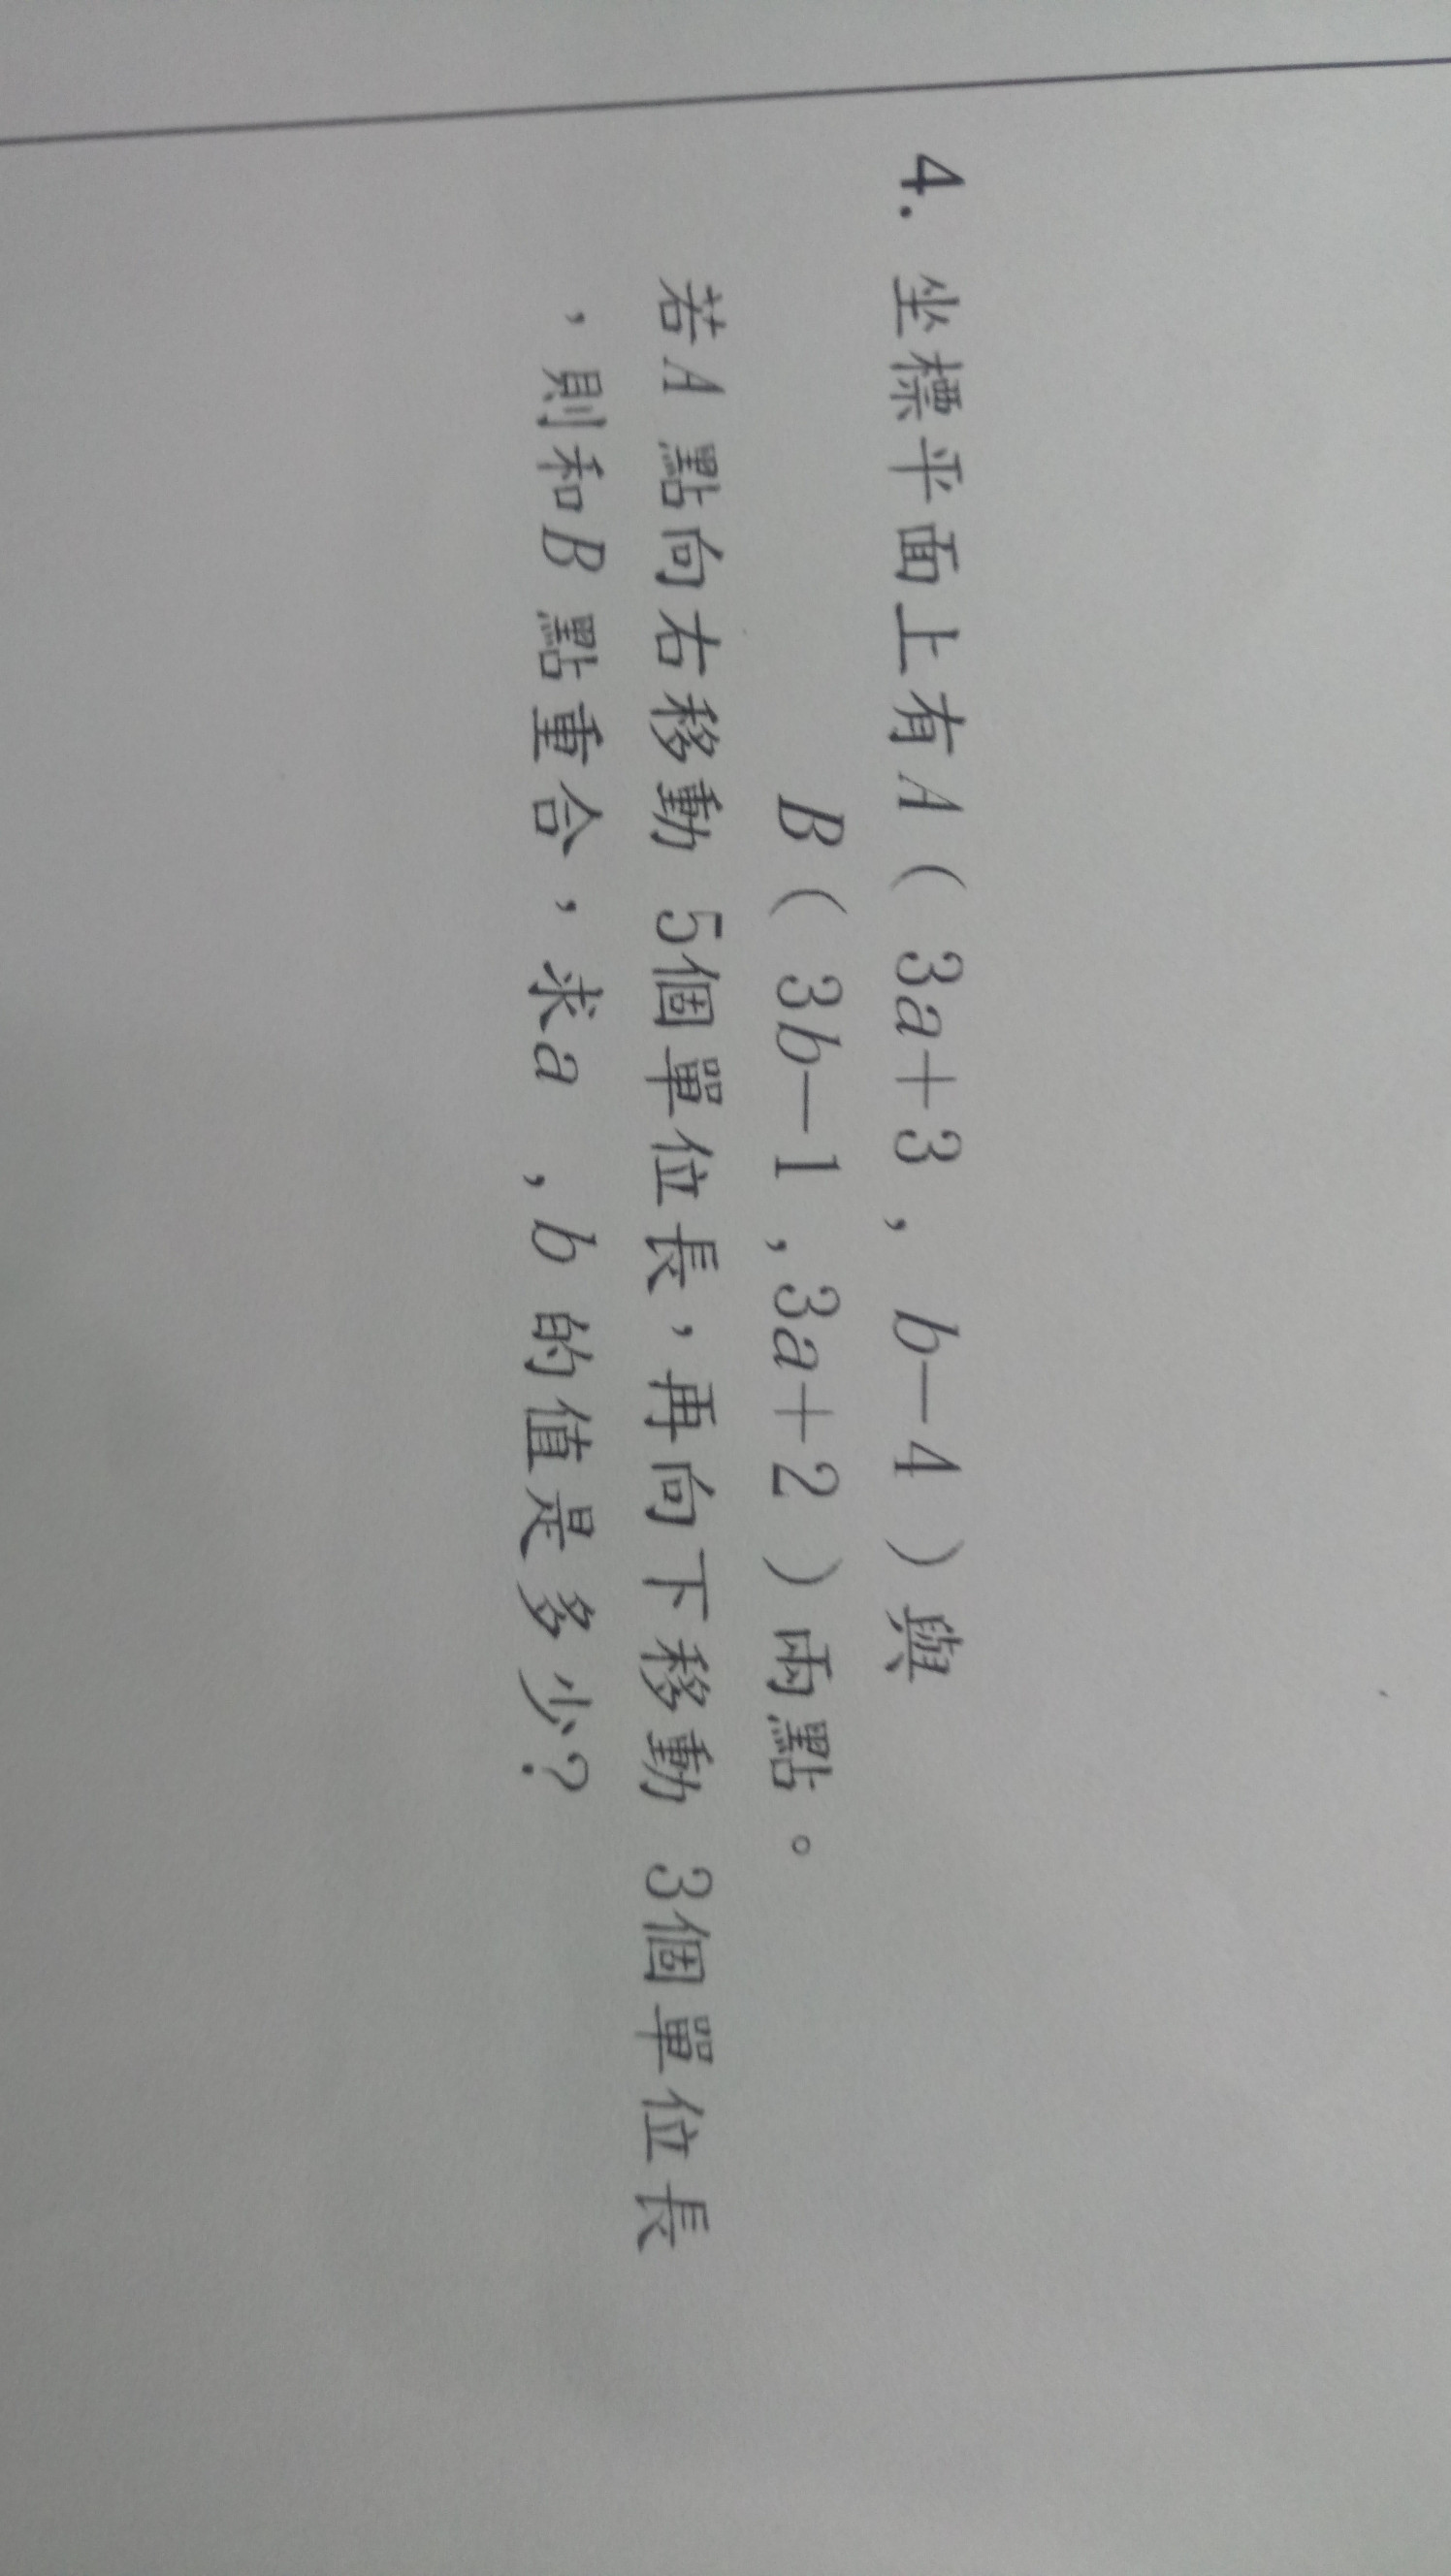 4. 坐標平面上有A( 3a+3, b-4 )與
B( 3b-1 ,3a+2 )兩點。
若A 點向右移動 5個單位長,再向下移動 3個單位長
,則和B 點重合,求a ,b 的值是多少?